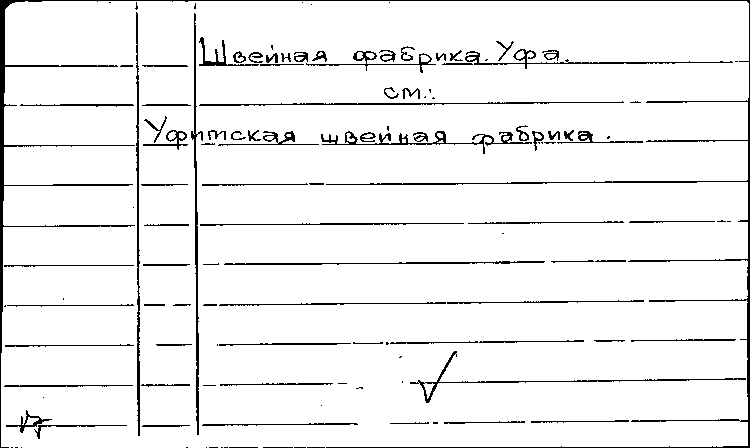 Швейная фабрика. Уфа.
см.:
Уфимская швейная фабрика.